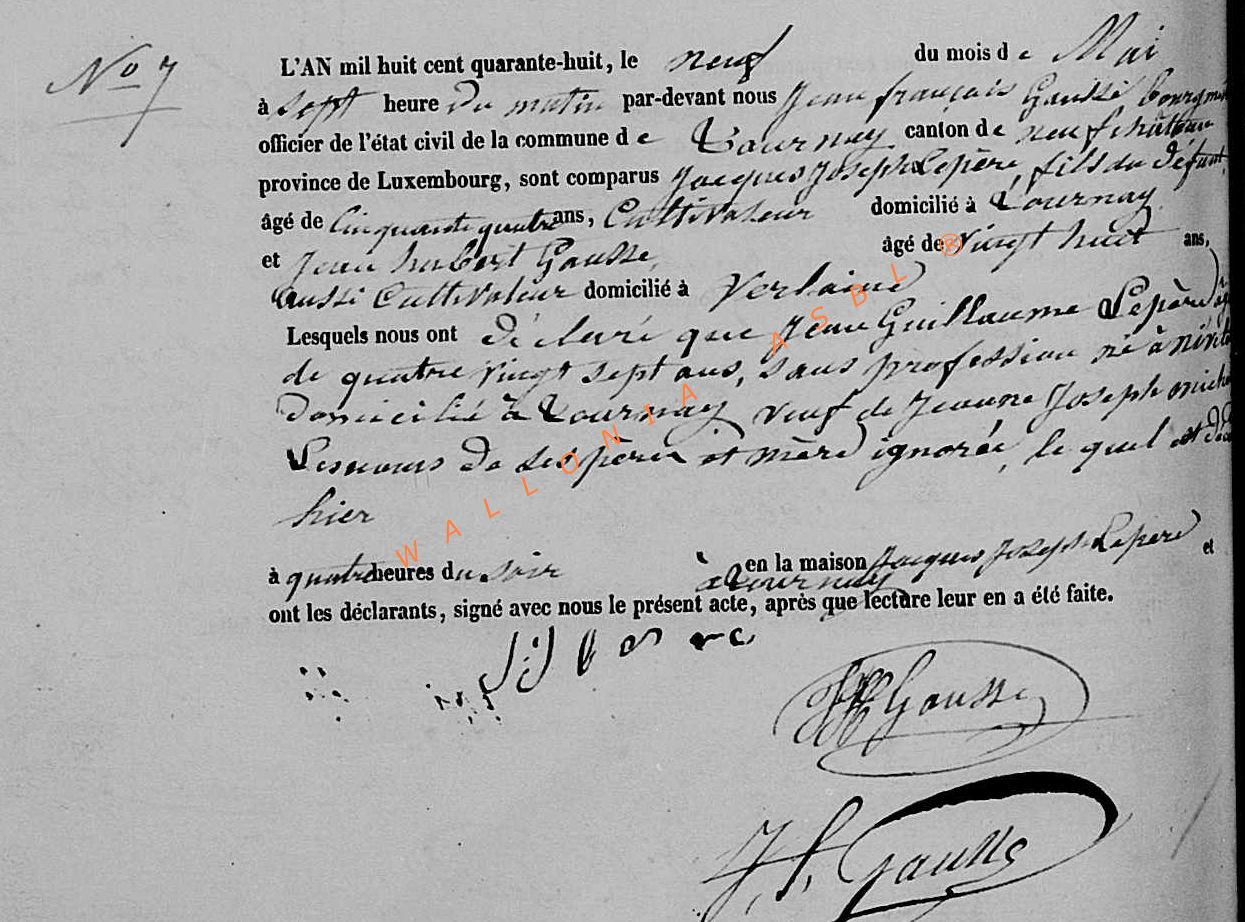 No 7
L'AN mil huit cent quarante-huit, le neuf du mois de Mai
à Sept heure du matin par-devant nous Jean françois Gausse
officier de l'état civil de la commune de Tournay canton de neufchâteau
province de Luxembourg, sont comparus Jacques Joseph Lepère, fils du défunt,
âgé de Cinquante quatre ans, Cultivateur domicilié à Tournay
et Jean hubert Gausse, âgé de vingt huit ans,
aussi Cultivateur domicilié à Verlaine
Lesquels nous ont déclaré que Jean Guillaume Lepère
de quatre vingt sept ans, sans profession né à
domicilié à Tournay veuf de Jeanne Joseph
Les noms de ses père et mère ignorée, le quel est
hier
à quatre heures du soir en la maison Jacques Joseph Lepère et
à Tournay
ont les déclarants, signé avec nous le présent acte, après que lecture leur en a été faite.
Gausse
J. f. Gausse
WALLONIA ASBL ®